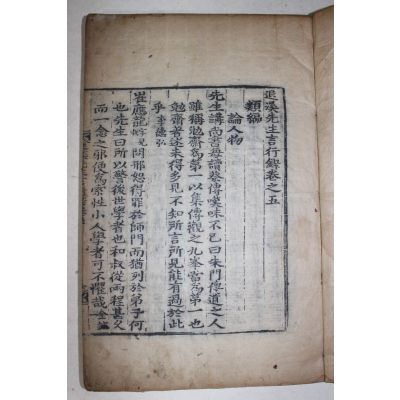 退溪先生言行錄卷之五
類編
論人物
先生講尚書每讀蔡傳嘆味不已曰朱門傳道之人
雖稱勉齋爲第一以集傳觀之九峯當爲第一也
勉齋著述未得多見不知所言所見能有過於此
乎 李德弘
崔應龍 問邢恕得罪於師門而猶列於弟子何
也先生曰所以警後世學者也和叔從兩程甚久
而一念之邪便爲索性小人學者可不懼哉 金